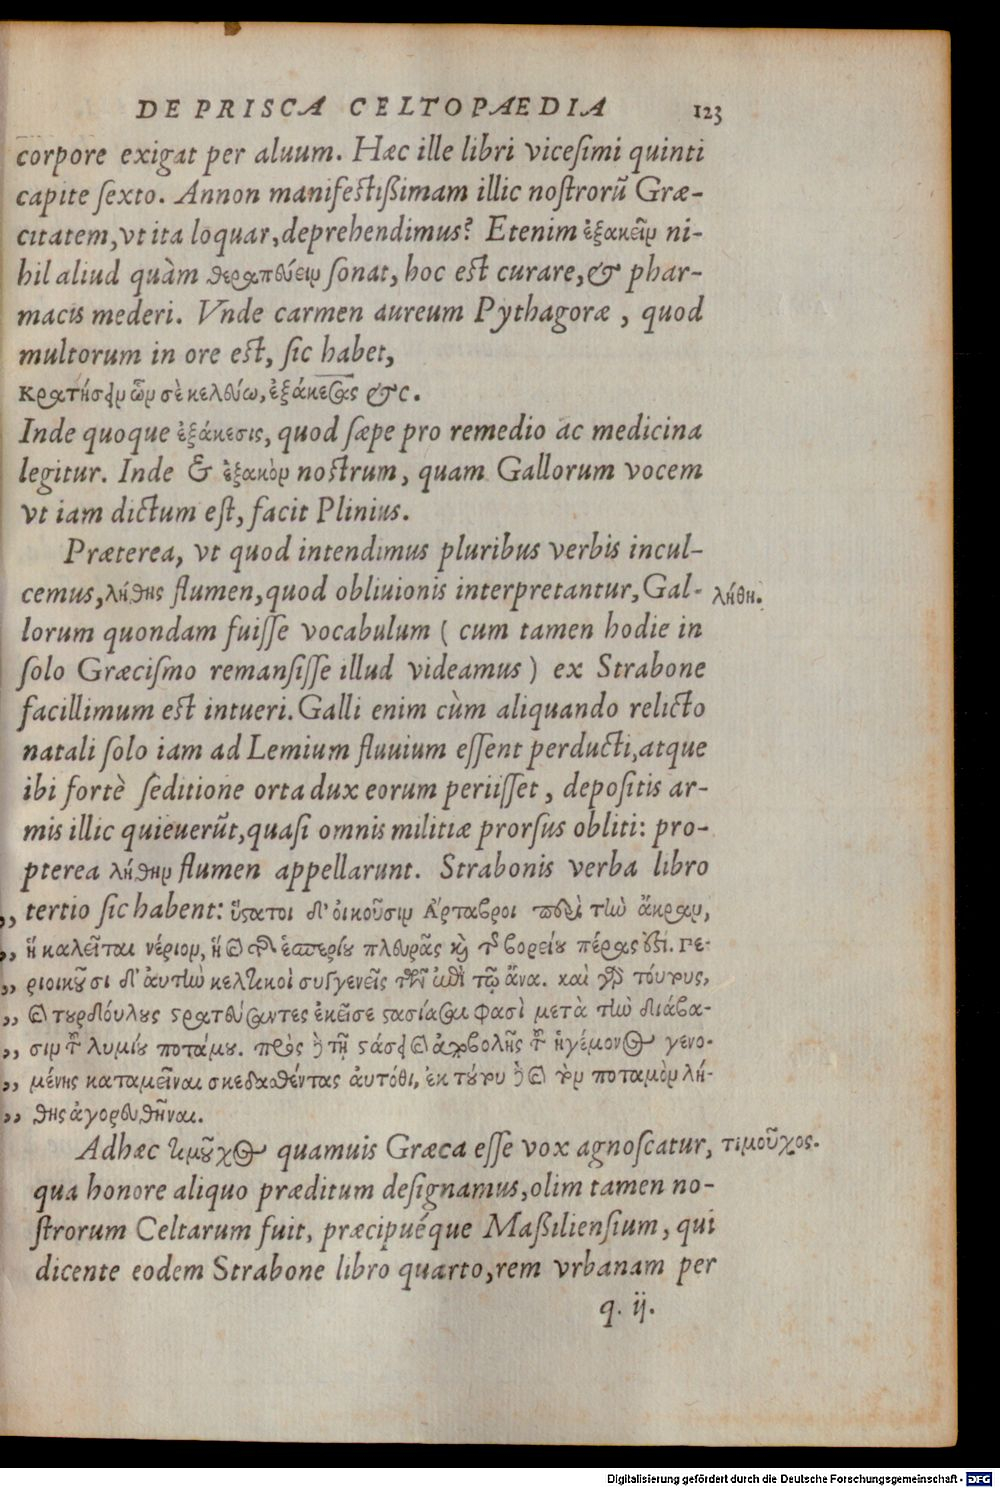 DE PRISCA CELTOPAEDIA 123
corpore exigat per aluum. Hæc ille libri vicesimi quinti
capite sexto. Annon manifestißimam illic nostrorũ Græ-
citatem, vt ita loquar, deprehendimus? Etenim ἐξακεῖν ni-
hil aliud quàm θεραπεύειν sonat, hoc est curare, & phar-
macis mederi. Vnde carmen aureum Pythagoræ , quod
multorum in ore est, sic habet,
κρατήσων ὧν σὲ κελεύω, ἐξάκεσας &c.
Inde quoque ἐξάκεσις, quod sæpe pro remedio ac medicina
legitur. Inde & ἐξακὸν nostrum, quam Gallorum vocem
vt iam dictum est, facit Plinius.
Præterea, vt quod intendimus pluribus verbis incul-
cemus, λήθης flumen, quod obliuionis interpretantur, Gal-
λήθη.
lorum quondam fuisse vocabulum ( cum tamen hodie in
solo Græcismo remansisse illud videamus ) ex Strabone
facillimum est intueri. Galli enim cùm aliquando relicto
natali solo iam ad Lemium fluuium essent perducti, atque
ibi fortè seditione orta dux eorum periisset , depositis ar-
mis illic quieuerũt, quasi omnis militiæ prorsus obliti: pro-
pterea λήθην flumen appellarunt. Strabonis verba libro
,, tertio sic habent: ὕστατοι δ' οἰκοῦσιν Ἄρταβροι περὶ τὴν ἄκραν,
,, ἣ καλεῖται νέριον, ἣ καὶ τῆς ἑσπερίου πλευρᾶς καὶ τῆς βορείου πέρας ἐστί. πε-
,, ριοικοῦσι δ' ἀυτὴν κελτικοὶ συγγενεῖς τῶν ἐπὶ τῷ ἄνα. καὶ γὰρ τούτους,
,, καὶ τουρδούλους στρατεύσαντες ἐκεῖσε στασιάσαι φασὶ μετὰ τὴν διάβα-
,, σιν τοῦ λυμίου ποταμου. πρὸς δὲ τῇ στάσει καὶ ἀποβολῆς τοῦ ἡγέμονος γενο-
,, μένης καταμεῖναι σκεδασθέντας ἀυτόθι, ἐκ τούτου δὲ καὶ τὸν ποταμὸν λή-
,, θης ἀγορευθῆναι.
Adhæc τιμοῦχος quamuis Græca esse vox agnoscatur,
τιμοῦχος.
qua honore aliquo præditum designamus, olim tamen no-
strorum Celtarum fuit, præcipuéque Maßiliensium, qui
dicente eodem Strabone libro quarto, rem vrbanam per
q. ij.
Digitalisierung gefördert durch die Deutsche Forschungsgemeinschaft - DFG